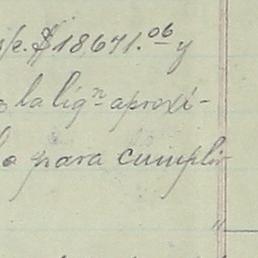 $18671.06 y
la lign aproxi-
para cumplir
"